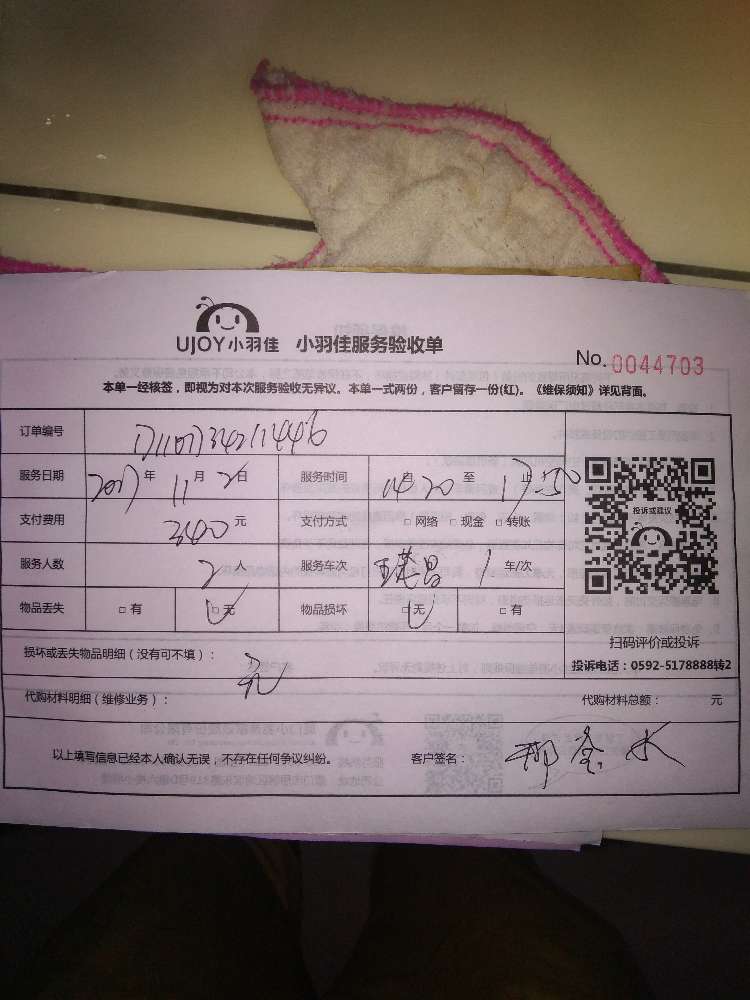 UJOY小羽佳 小羽佳服务验收单
No. 0044703
本单一经核签，即视为对本次服务验收无异议。本单一式两份，客户留存一份(红)。《维保须知》详见背面。
订单编号
服务日期 2017年 11月 2日 服务时间 14:20 至 17:50 止
支付费用 3400元 支付方式 □网络 □现金 □转账
投诉或建议
服务人数 2人 服务车次 1车/次
物品丢失 □有 □无 物品损坏 □无 □有
扫码评价或投诉
损坏或丢失物品明细（没有可不填）： 无
投诉电话：0592-5178888转2
代购材料明细（维修业务）： 代购材料总额： 元
以上填写信息已经本人确认无误，不存在任何争议纠纷。 客户签名：